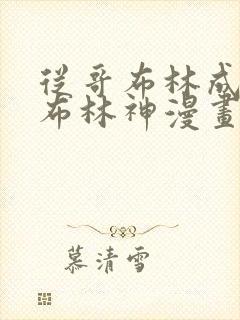 從哥布林成
布林神漫畫
慕清雪